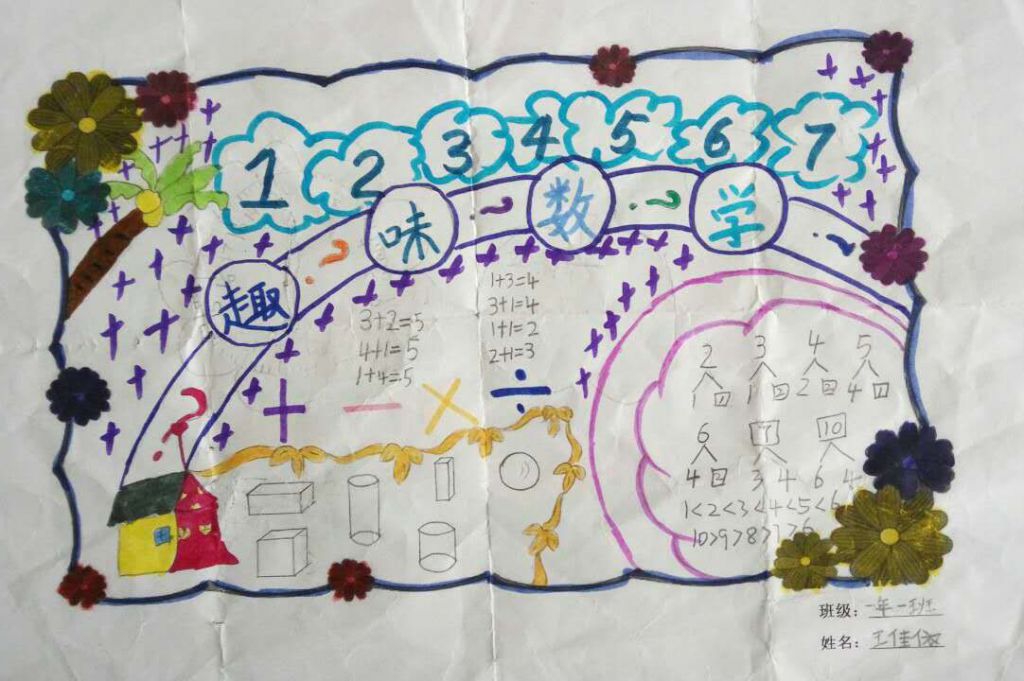 1 2 3 4 5 6 7
趣 ? 味 ? 数 ? 学 ?
3+2=5
4+1=5
1+4=5
1+3=4
3+1=4
1+1=2
2+1=3
+ − × ÷
?
2 3 4 5
1 1 1 2 2 2 4 1
6 7 10
4 2 3 4 6 4
1<2<3<4<5<6
10>9>8>7>6
班级：一年一班
姓名：王佳